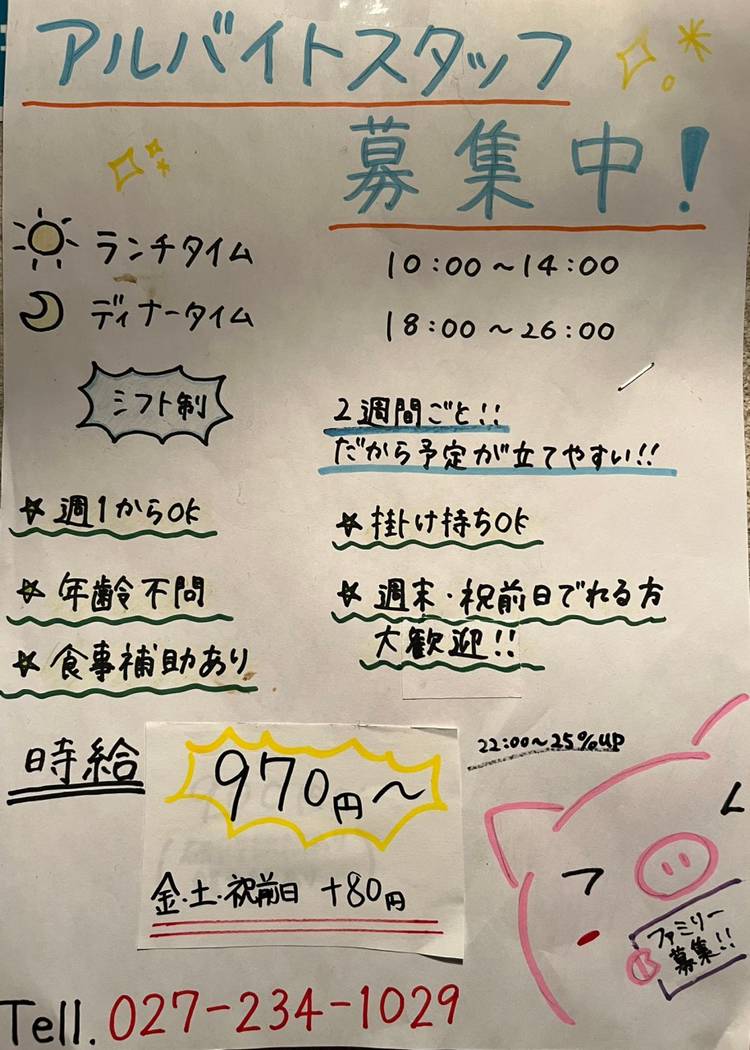 アルバイトスタッフ
募集中!
ランチタイム 10:00~14:00
ディナータイム 18:00~26:00
シフト制
2週間ごと!!
だから予定が立てやすい!!
☆週1からOK
☆掛け持ちOK
☆年齢不問
☆週末・祝前日でれる方
大歓迎!!
☆食事補助あり
時給
970円~
22:00~25%UP
金・土・祝前日 +80円
ファミリー
募集!!
Tell. 027-234-1029